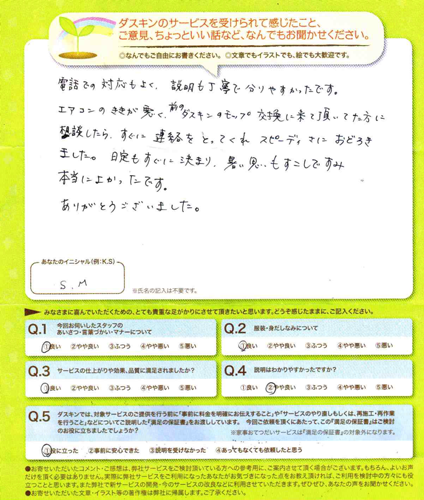 ダスキンのサービスを受けられて感じたこと、
ご意見、ちょっといい話など、なんでもお聞かせください。
◎なんでもご自由にお書きください。 ◎文章でもイラストでも、絵でも大歓迎です。
電話での対応もよく、説明も丁寧で分りやすかったです。
エアコンのききが悪く、前のダスキンのモップ交換に来て頂いてた方に
相談したら、すぐに連絡をとってくれスピーディさにおどろき
ました。日定もすぐに決まり、暑い思いもすこしですみ
本当によかったです。
ありがとうございました。
あなたのイニシャル(例:K.S)
S.M
※氏名の記入は不要です。
みなさまに喜んでいただくための、とても貴重な足がかりにさせて頂きたいと思います。どうぞ感じたままに、ご記入ください。
Q.1 今回お伺いしたスタッフの
あいさつ・言葉づかい・マナーについて
①良い ②やや良い ③ふつう ④やや悪い ⑤悪い
Q.2 服装・身だしなみについて
①良い ②やや良い ③ふつう ④やや悪い ⑤悪い
Q.3 サービスの仕上がりや効果、品質に満足されましたか？
①良い ②やや良い ③ふつう ④やや悪い ⑤悪い
Q.4 説明はわかりやすかったですか？
①良い ②やや良い ③ふつう ④やや悪い ⑤悪い
Q.5 ダスキンでは、対象サービスのご提供を行う前に「事前に料金を明確にお伝えすること」や「サービスのやり直しもしくは、再施工・再作業
を行うこと」などについてご説明した『満足の保証書』をお渡ししています。 今回ご依頼を頂くにあたって、この『満足の保証書』はご検討
のお役に立ちましたでしょうか？
※家事おてつだいサービスは『満足の保証書』の対象外になります。
①役に立った ②事前に安心できた ③説明を受けなかった ④あってもなくても依頼したと思う
●お寄せいただいたコメント・ご感想は、弊社サービスをご検討頂いている方への参考用に、ご案内させて頂く場合がございます。もちろん、よいお声
だけを頂く必要はありません。実際に弊社サービスをご利用になったあなたがお気づきになった点をお教え頂ければ、ご利用を検討中の方々にも役
立つことと思います。また、弊社で新サービスの開発・今のサービスの改良などに利用させていただきます。ぜひぜひ、あなたの声をお聞かせください。
●お寄せいただいた文章・イラスト等の著作権は弊社に帰属します。ご了承ください。